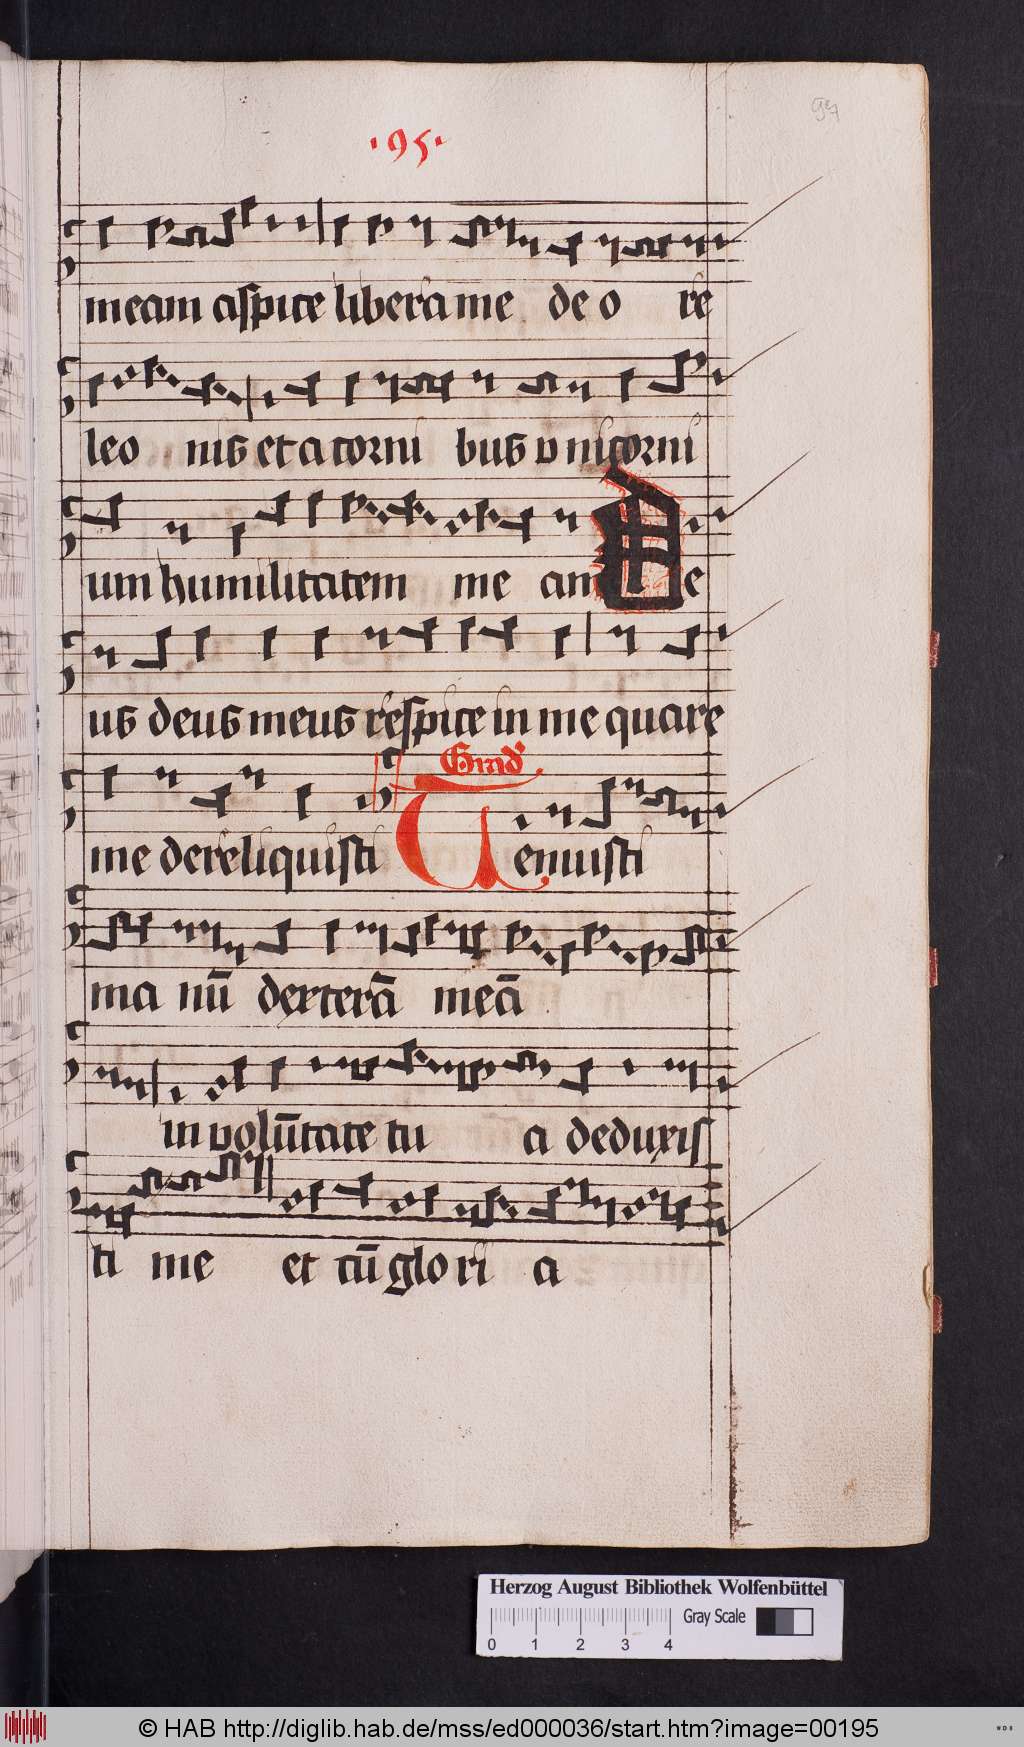 ·95·
meam aspice libera me de o re
leo nis et a corni bus v nicorni
um humilitatem me am De
us deus meus respice in me quare
me dereliquisti Grad' Tenuisti
ma nū dexterā meā
in volūtate tu a deduxis
ti me et cū glo ri a
Herzog August Bibliothek Wolfenbüttel
Gray Scale
0 1 2 3 4
© HAB http://diglib.hab.de/mss/ed000036/start.htm?image=00195